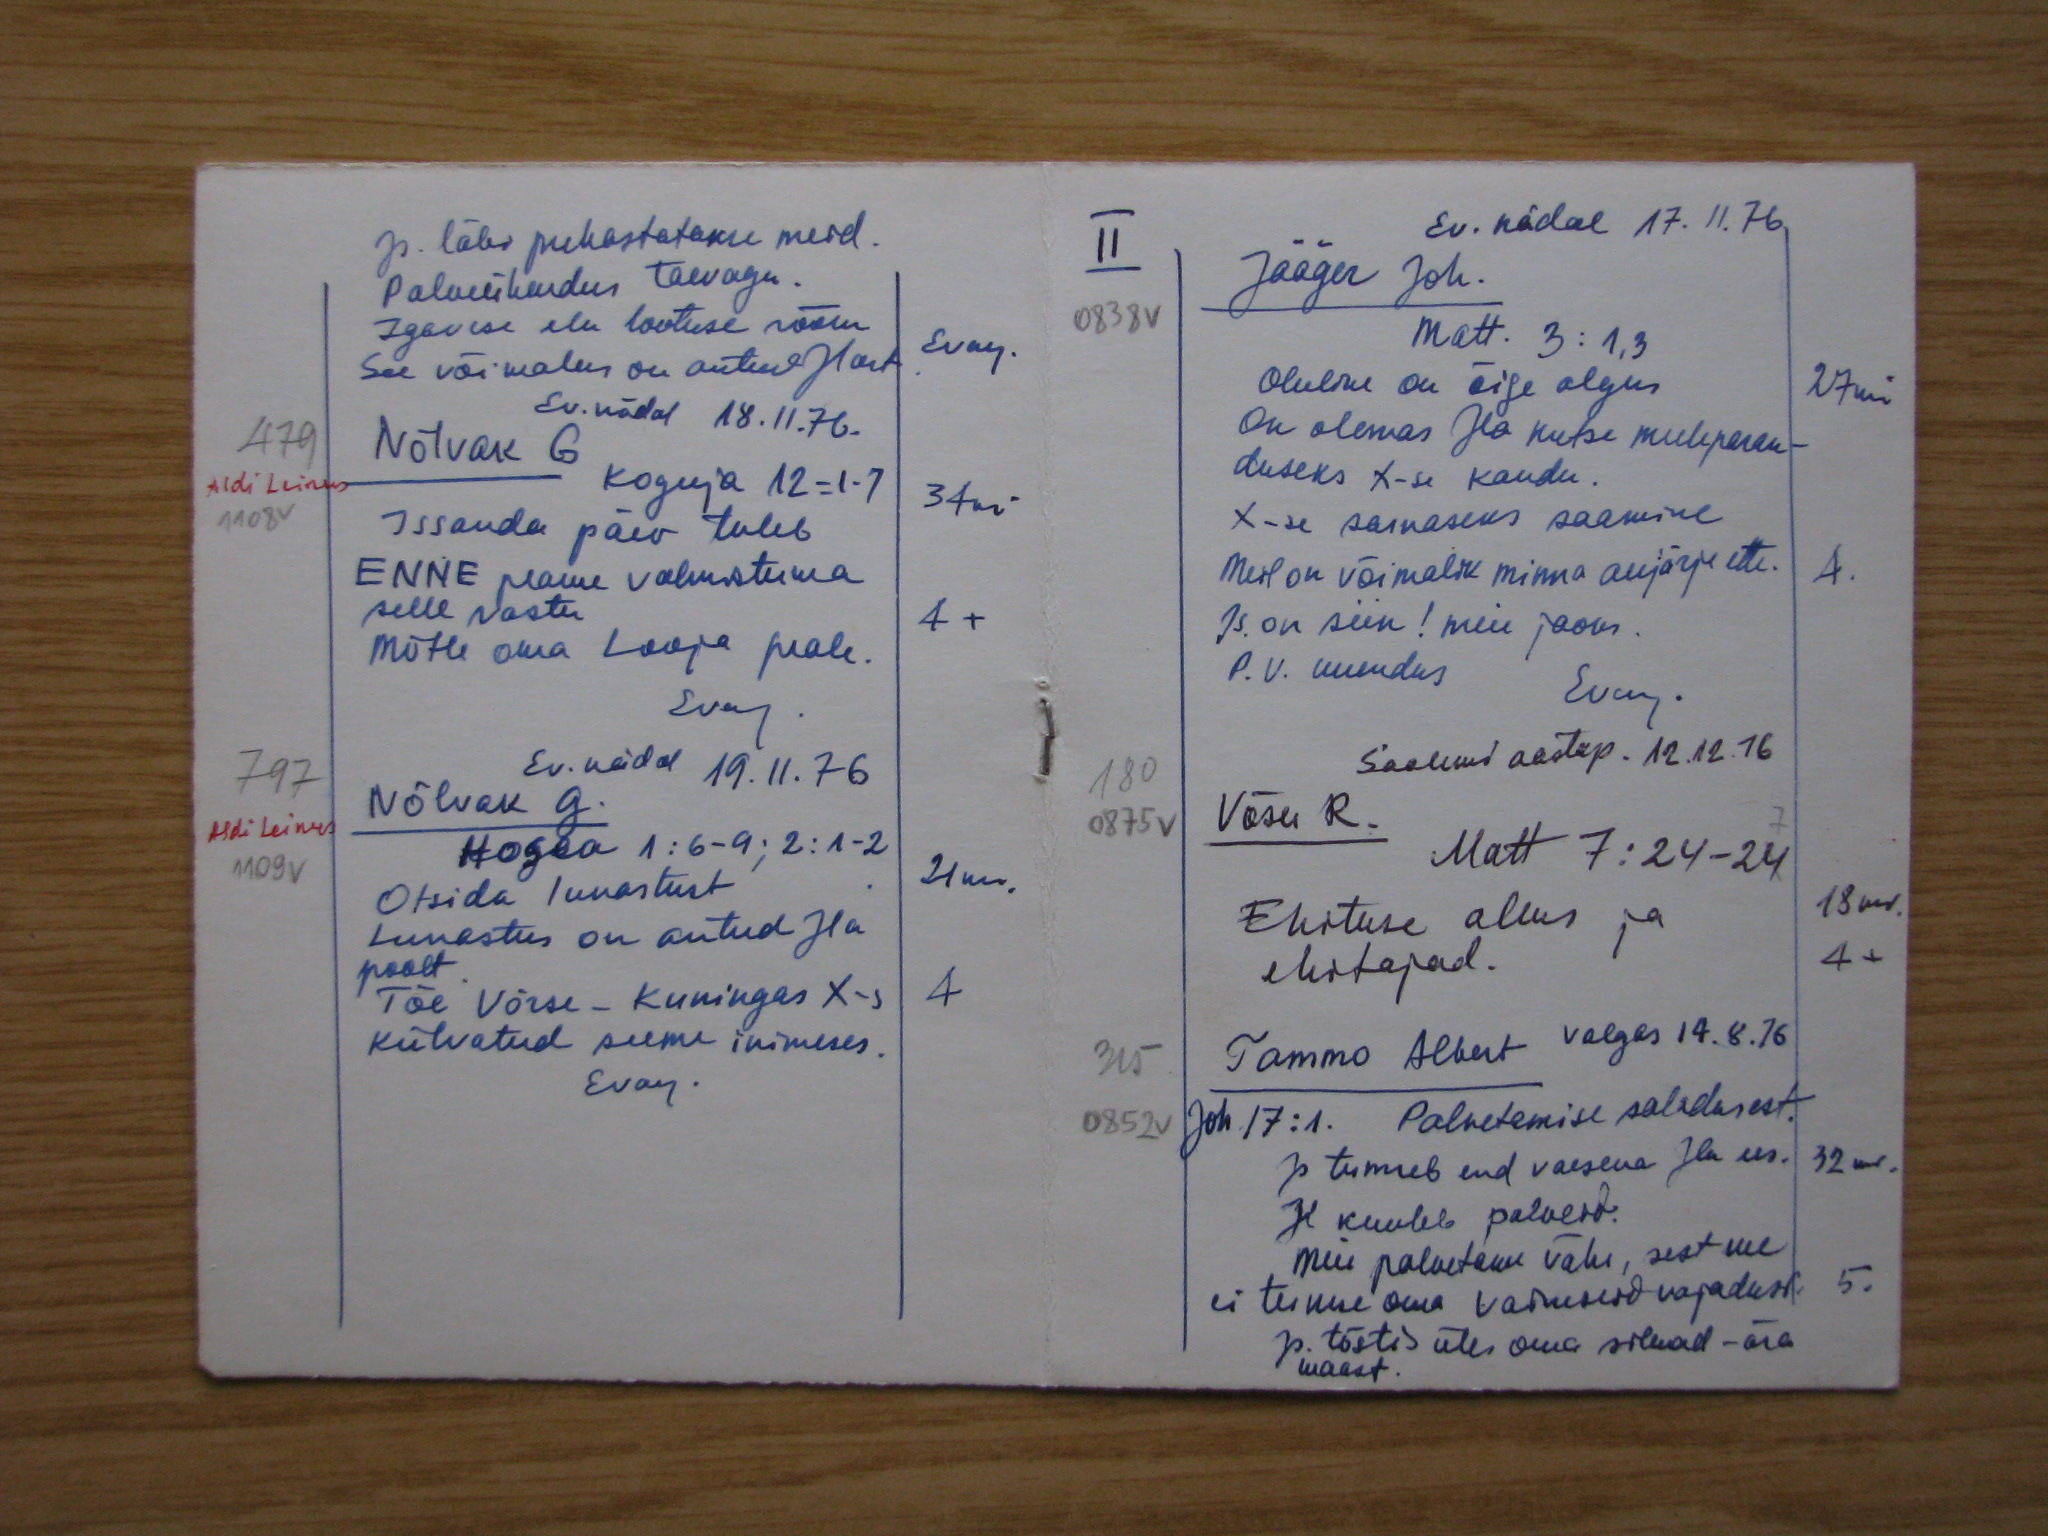 Js. läbi puhastatakse meid.
Palveühendus taevaga.
Igavese elu lootuse rõõm
See võimalus on antud Jlast
Evang.
Ev. nädal 18.11.76.
479
Nõlvak G
Aldi Leinus
Koguja 12=1-7
34 mi
1108v
Issanda päev tuleb
ENNE peame valmistuma
selle vastu
4 +
Mõtle oma Looja peale.
Evang.
Ev. nädal 19.11.76
797
Nõlvak G.
Aldi Leinus
Hosea 1:6-9; 2:1-2
21 mi.
1109v
Otsida lunastust
Lunastus on antud Jla
poolt.
Tõe Võrse - Kuningas X-s
4
Külvatud seeme inimeses.
Evang.
II
Ev. nädal 17.11.76
Jääger Joh.
0838v
Matt. 3:1,3
Oluline on õige algus
27 mi
On olemas Jla kutse meeleparan-
duseks X-se kaudu.
X-se sarnaseks saamine
Meil on võimalik minna aujärje ette.
4.
Js. on siin! meie jaoks.
P. V. uuendus
Evang.
Saalemi aastap. 12.12.76
180
Võsu R.
0875v
Matt 7:24-27
18 mi.
Ehituse alus ja
ehitajad.
4 +
315
Tammo Albert Valgas 14.8.76
0852v
Joh. 17:1. Palvetamise saladusest.
Js tunneb end vaesena Jla ees.
32 mi.
Jl kuuleb palveid.
Meie palvetame vähe, sest me
ei tunne oma vaimseid vajadusi.
5.
Js. tõstis üles oma silmad - ära
maast.